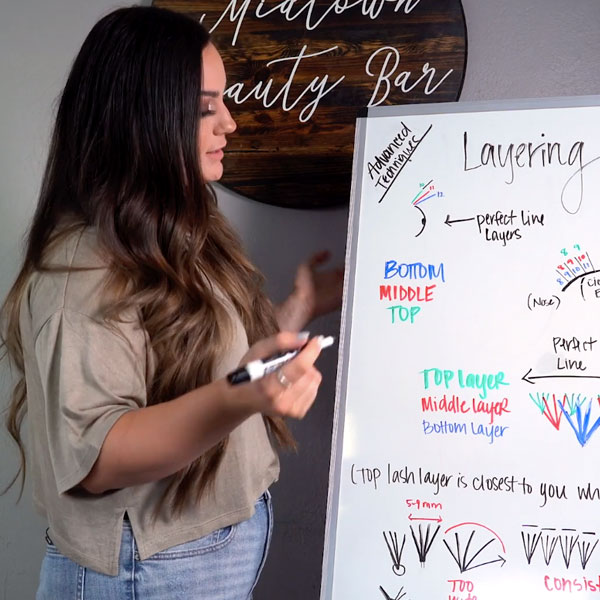 Midtown
Beauty Bar
Advanced
Techniques
Layering
perfect line
Layers
BOTTOM
MIDDLE
TOP
(Nose)
perfect
Line
TOP layer
Middle layer
Bottom Layer
(TOP lash layer is closest to you
5-9 mm
TOO